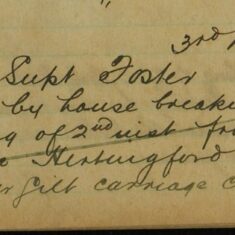 "
3rd
Supt Foster
by house break
g of 2nd inst fr
Hertingford
r Gilt carriage c